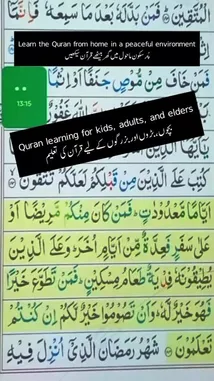 الْمُتَّقِيْنَ ۝ فَمَنْۢ بَدَّلَهٗ بَعْدَ مَا سَمِعَهٗ فَاِنَّمَاۤ
Learn the Quran from home in a peaceful environment
پُر سکون ماحول میں گھر بیٹھے قرآن سیکھیں
فَمَنْ خَافَ مِنْ مُّوْصٍ جَنَفًا اَوْ اِثْمًا
13:15
Quran learning for kids, adults, and elders
بچوں، بڑوں اور بزرگوں کے لیے قرآن کی تعلیم
يٰۤاَيُّهَا الَّذِيْنَ
كُتِبَ عَلَى الَّذِيْنَ مِنْ قَبْلِكُمْ لَعَلَّكُمْ تَتَّقُوْنَ ۝
اَيَّامًا مَّعْدُوْدٰتٍ ؕ فَمَنْ كَانَ مِنْكُمْ مَّرِيْضًا اَوْ
عَلٰى سَفَرٍ فَعِدَّةٌ مِّنْ اَيَّامٍ اُخَرَ ؕ وَعَلَى الَّذِيْنَ
يُطِيْقُوْنَهٗ فِدْيَةٌ طَعَامُ مِسْكِيْنٍ ؕ فَمَنْ تَطَوَّعَ خَيْرًا
فَهُوَ خَيْرٌ لَّهٗ ؕ وَاَنْ تَصُوْمُوْا خَيْرٌ لَّكُمْ اِنْ كُنْتُمْ
تَعْلَمُوْنَ ۝ شَهْرُ رَمَضَانَ الَّذِيْۤ اُنْزِلَ فِيْهِ